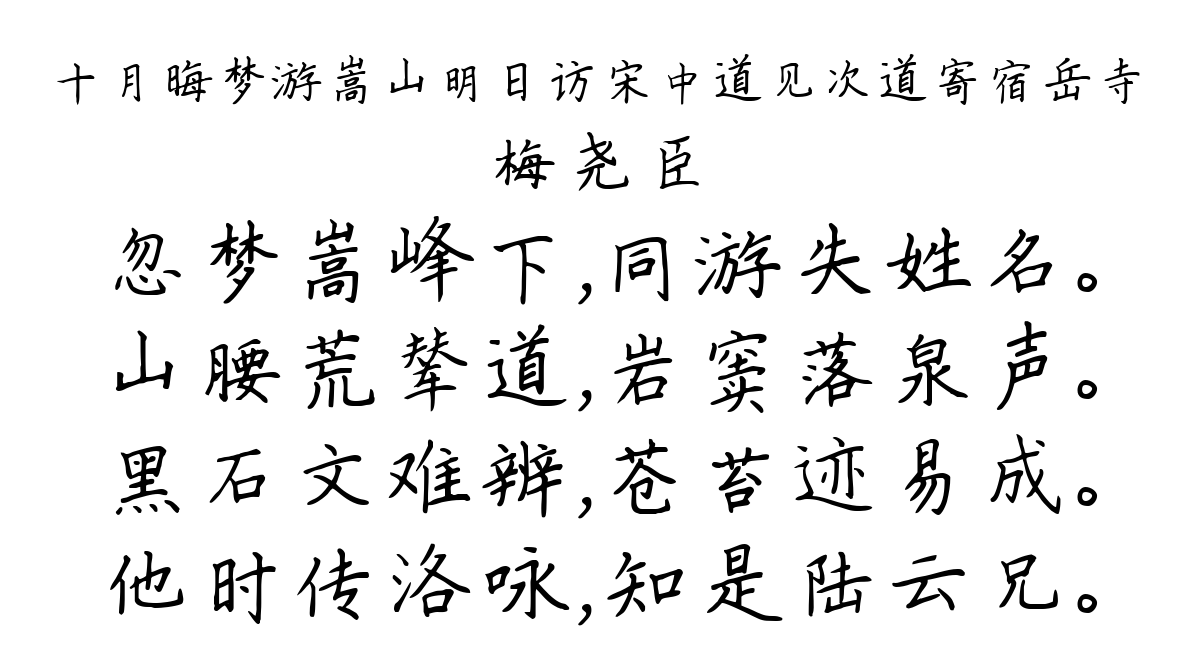 十月晦梦游嵩山明日访宋中道见次道寄宿岳寺
梅尧臣
忽梦嵩峰下,同游失姓名。
山腰荒辇道,岩窦落泉声。
黑石文难辨,苍苔迹易成。
他时传洛咏,知是陆云兄。